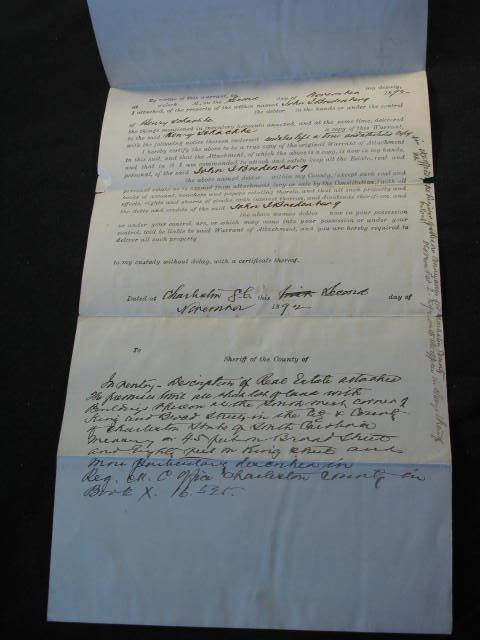 By virtue of this warrant, my deputy,
at o'clock M., on the Second day of November 1892
I attached, of the property of the within named John S. Bredenberg
the debtor in the hands or under the control
of Henry
the things mentioned in inventory hereunto annexed, and at the same time, delivered
to the said Henry a copy of this Warrant,
with the following notice thereon endorsed:
I hereby certify the above to be a true copy of the original Warrant of Attachment
in this suit, and that the Attachment, of which the above is a copy, is now in my hands,
and that in it I am commanded to attach and safely keep all the Estate, real and
personal, of the said John S. Bredenberg
the above named debtor within my County, (except such real and
personal estate as is exempt from attachment, levy or sale by the Constitution,) with all
books of account, vouchers and papers relating thereto, and that all such property and
effects, rights and shares of stocks with interest thereon, and dividends therefrom, and
the debts and credits of the said John S Bredenberg
the above named debtor now in your possession
or under your control, are, or which may come into your possession or under your
control, will be liable to said Warrant of Attachment, and you are hereby required to
deliver all such property
to my custody without delay, with a certificate thereof.
Dated at Charleston S.C. this Second day of
November 1892
To
Sheriff of the County of
Inventory - Description of Real Estate attached
The premises lot of land with
Buildings thereon at the South west corner of
King and Broad Streets in the City & County
of Charleston State of South Carolina
Measuring 45 feet on Broad Street
and eighty feet on King street and
more particularly described in
Reg. M. C. Office Charleston County in
Book X. 16. 525.